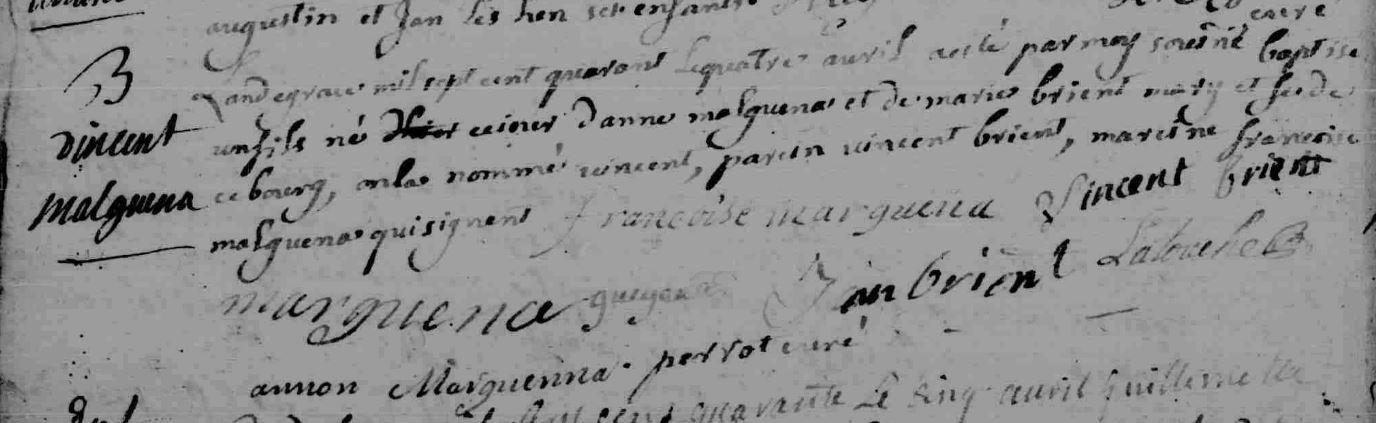 augustin et Jan les hen ses enfants
curé
B
Landegrace mil sept cent quarant le quatre avril a esté par moy sousné baptise
un fils né ce jour d'anne malguena et de marie brient mary et fe de
vincent
ce bourg, on la nommé vincent, parein vincent brient, mareine francoise
malguena
malguena qui signent francoise marguena Vincent brient
marguena Jan brient
annon Marguenna. perrot curé
quarante Le sinq avril guillemette